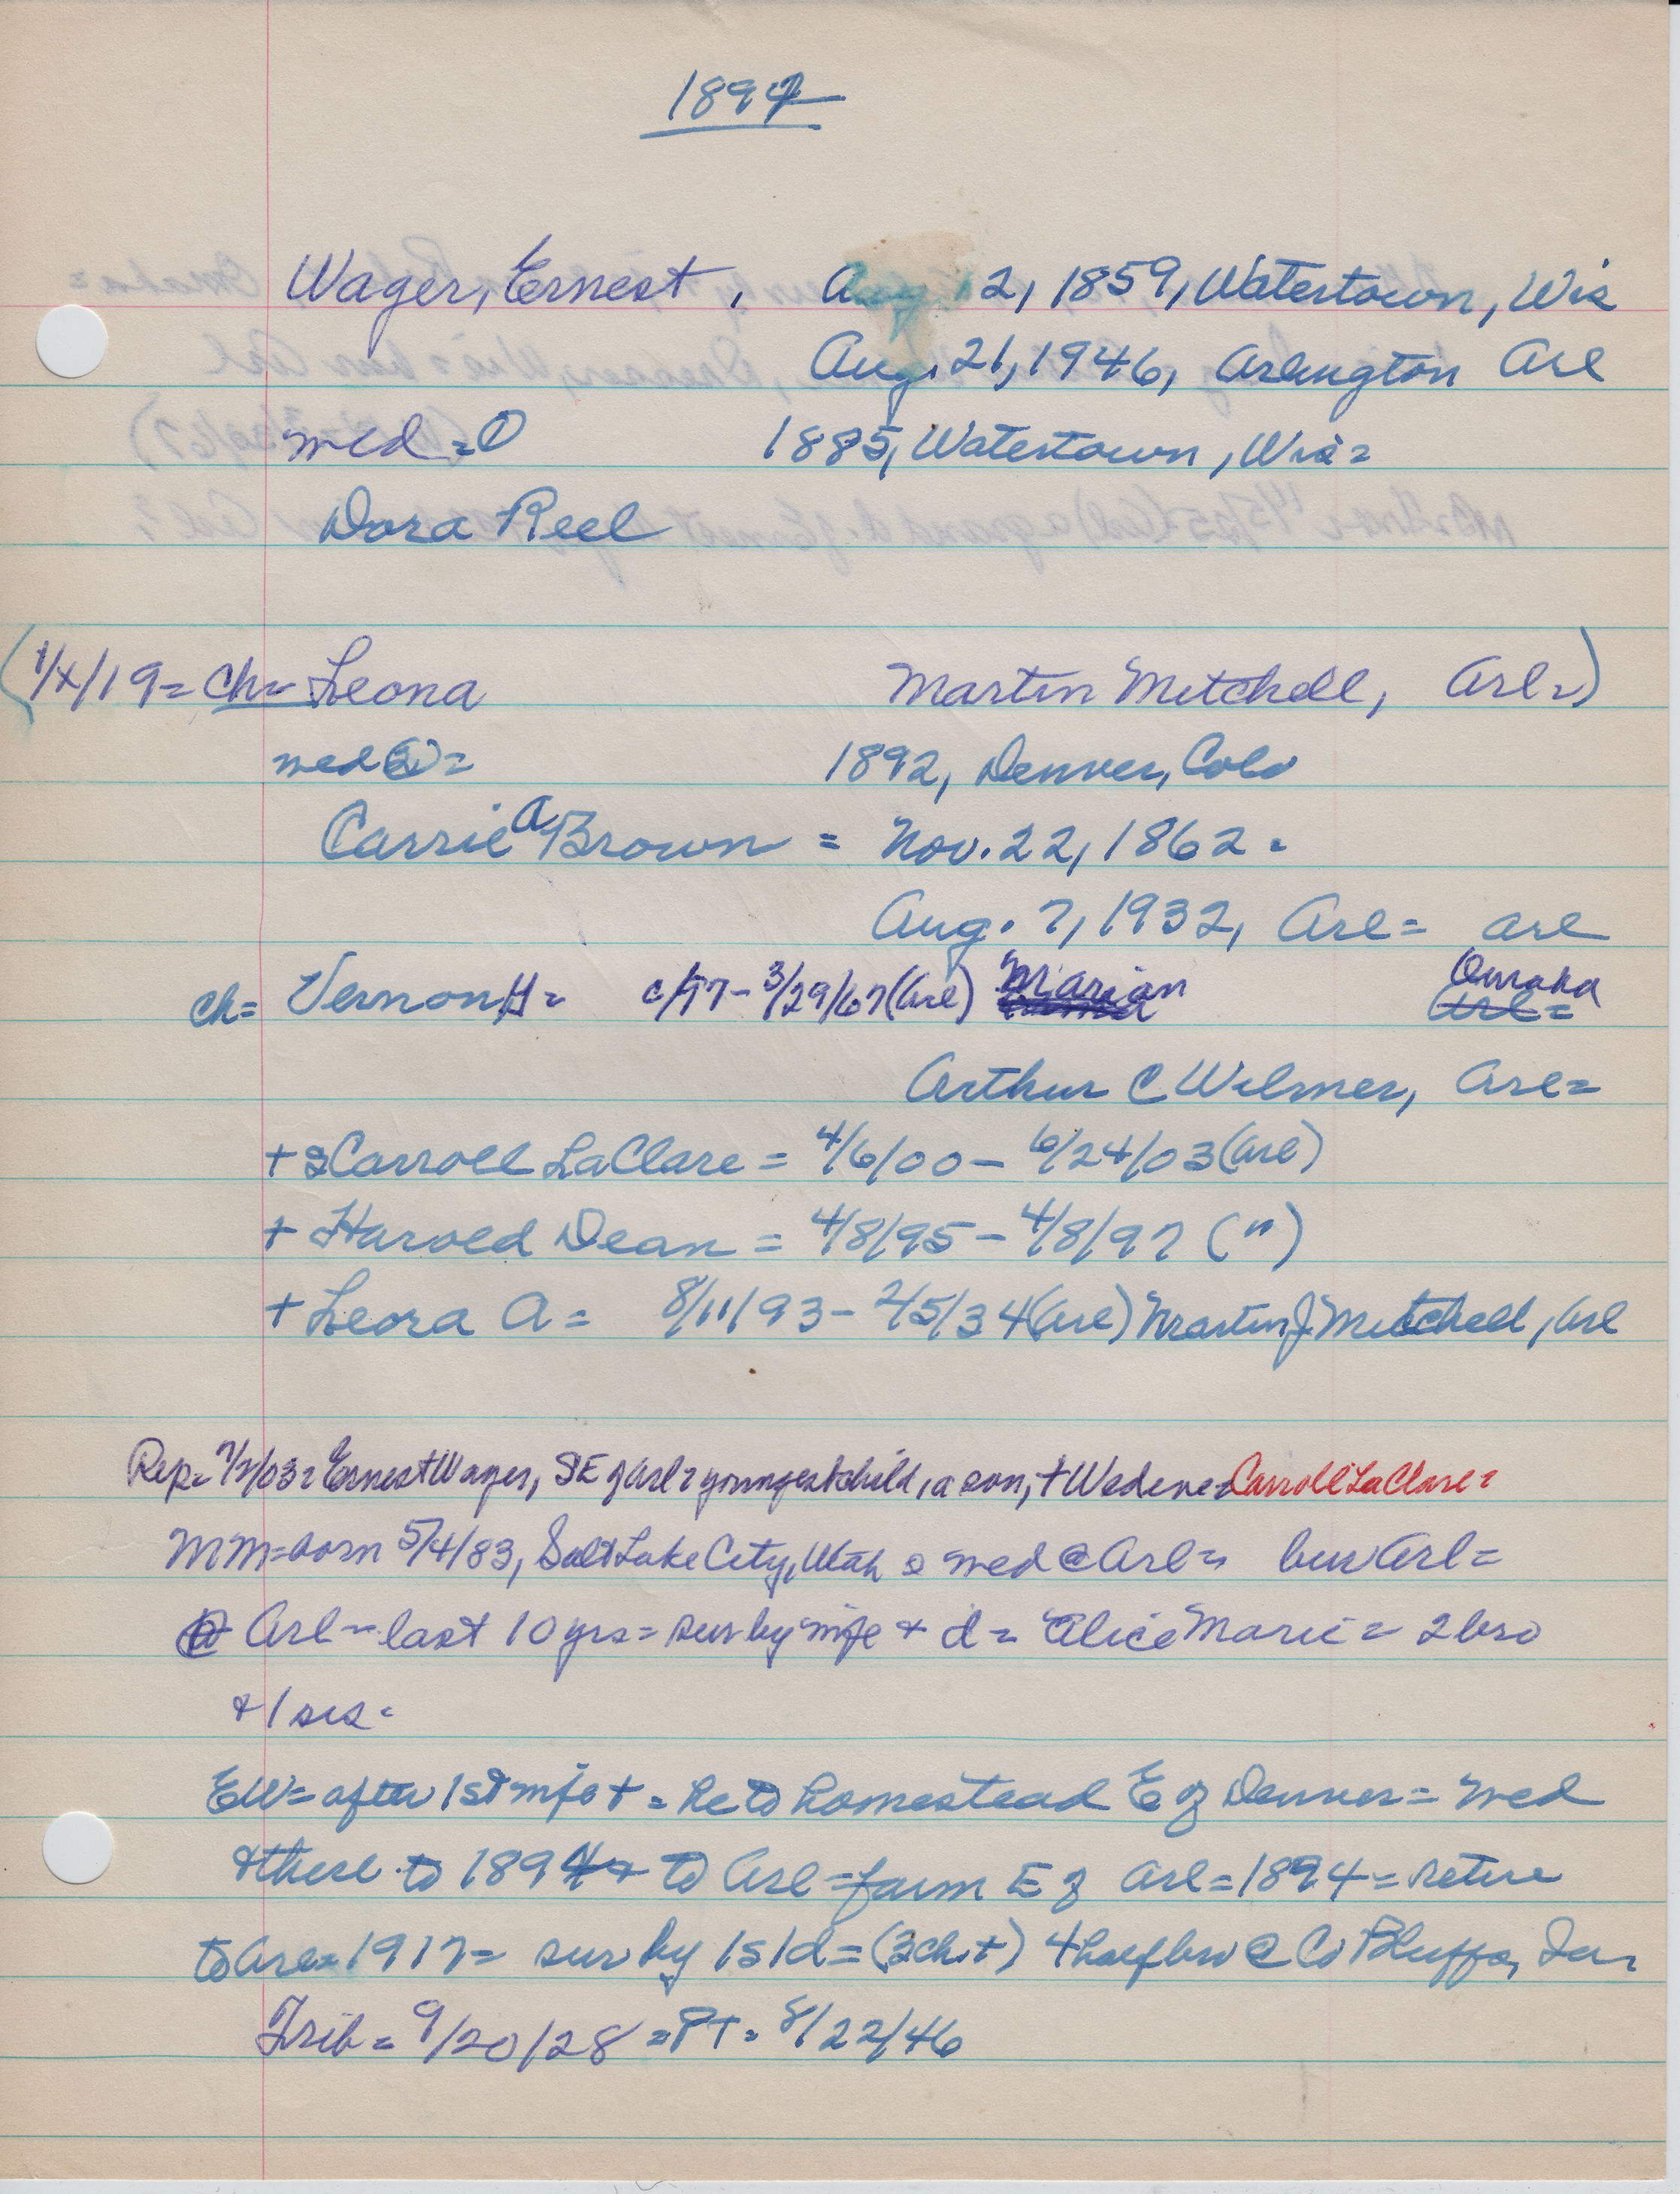 1894
Wager, Ernest, Aug 12, 1859, Watertown, Wis
Aug. 21, 1946, Arlington Arl
med = ① 1885, Watertown, Wis =
Dora Reel
(1/x/19 = ch = Leona Martin Mitchell, Arl =)
med ② = 1892, Denver, Colo
Carrie A Brown = Nov. 22, 1862 =
Aug. 7, 1932, Arl = Arl
ch = Vernon H = c/97 - 3/29/67 (Arl) Marian Omaha
Arthur C Wilmer, Arl =
+ s Carroll LaClare = 4/6/00 - 6/24/03 (Arl)
+ Harold Dean = 4/8/95 - 4/8/97 (")
+ Leora A = 8/11/93 - 2/5/34 (Arl) Martin J Mitchell, Arl
Rep = 7/2/03 = Ernest Wager, SE of Arl = youngest child, a son, + Wed eve = Carroll LaClare =
MM = born 5/4/83, Salt Lake City, Utah & med @ Arl = bur Arl =
@ Arl - last 10 yrs = sur by wife + d = Alice Marie = 2 bro
+ 1 sis =
EW = after 1st wife + = he to homestead E of Denver = med
& there to 1894 + to Arl = farm E of Arl = 1894 = retire
to Arl = 1917 = sur by 1s 1d = (3 ch +) 4 half bro @ Co Bluffs, Ia =
Trib = 9/20/28 = PT = 8/22/46